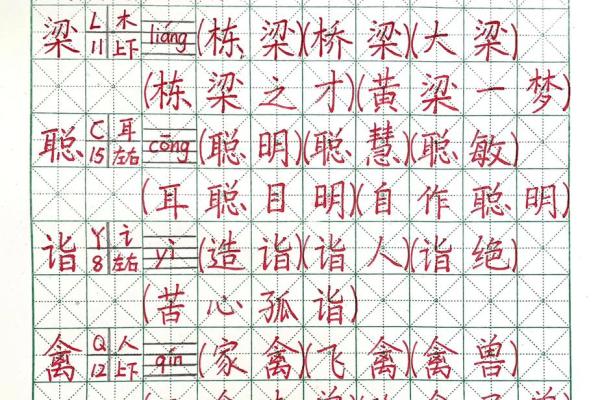 梁 L 木 11 上下 liáng (栋梁)(桥梁)(大梁)
(栋梁之才)(黄梁一梦)
聪 C 耳 15 左右 cōng (聪明)(聪慧)(聪敏)
(耳聪目明)(自作聪明)
诣 Y 讠 8 左右 yì (造诣)(诣人)(诣绝)
(苦心孤诣)
禽 Q 人 12 上下 qín (家禽)(飞禽)(禽兽)